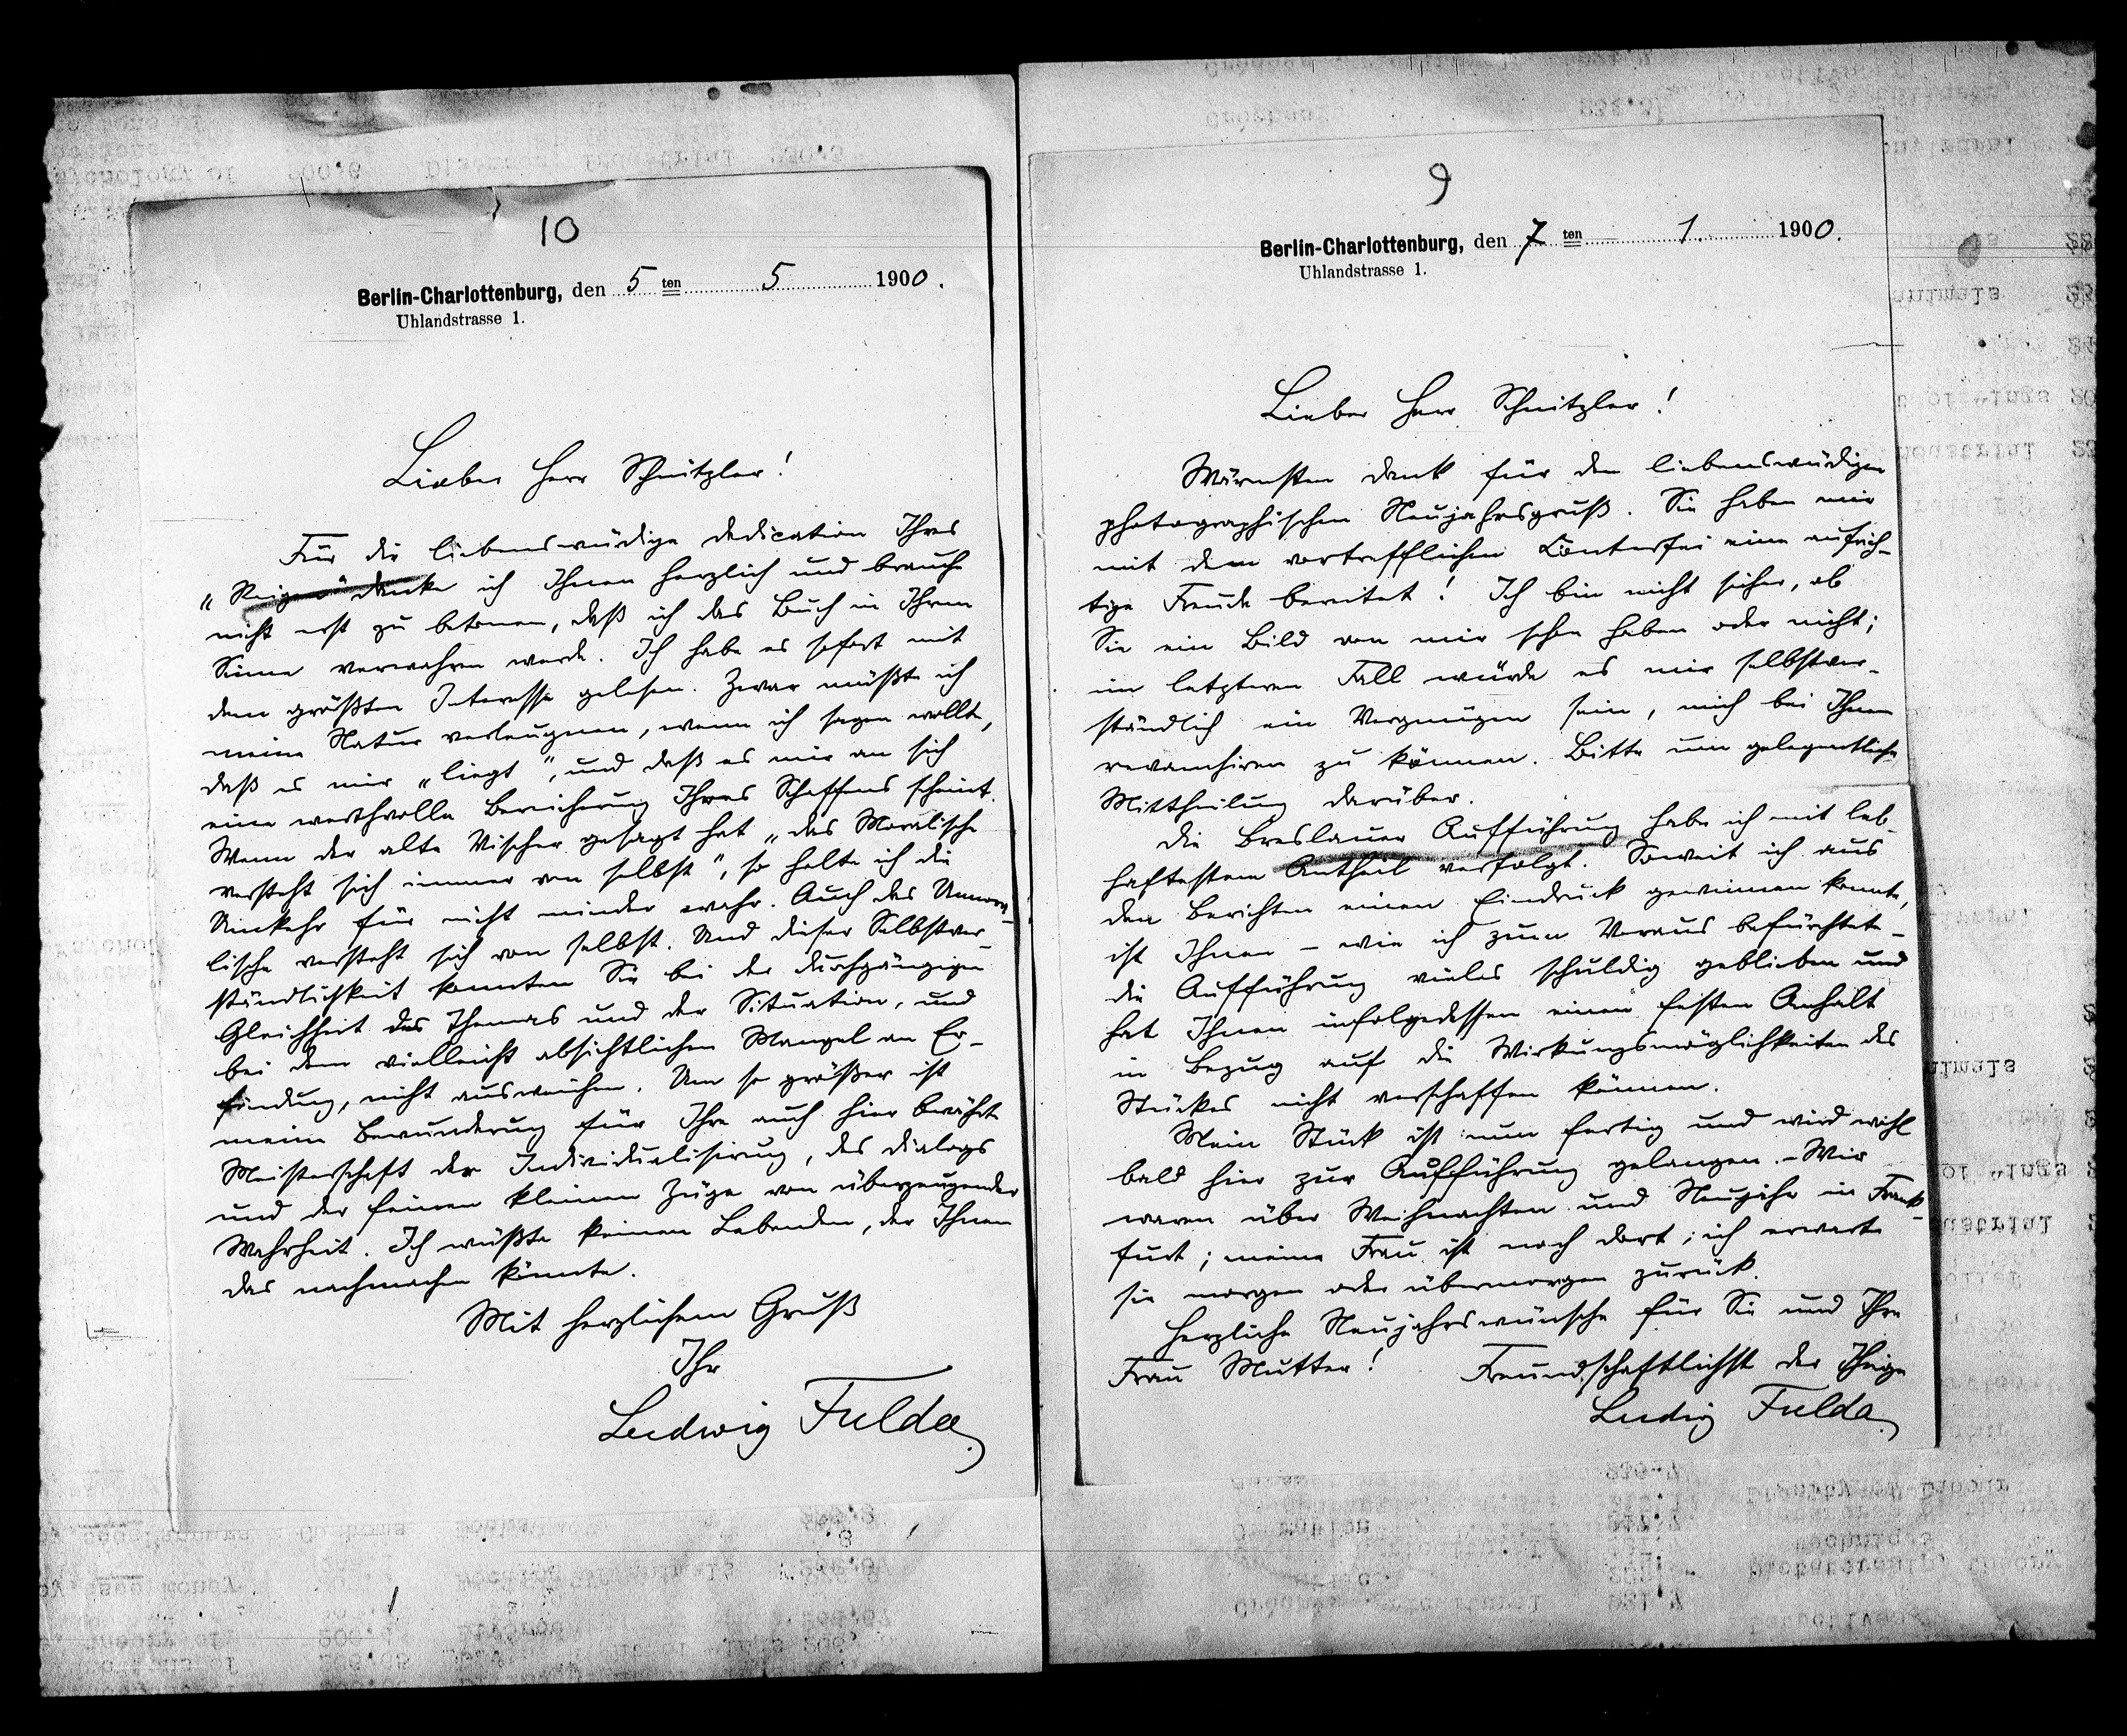 10
Berlin-Charlottenburg, den 5 ten 5 1900.
Uhlandstrasse 1.
Lieber Herr Schnitzler!
Für die liebenswürdige Dedication Ihres
„Reigen“ danke ich Ihnen herzlich und brauche
nicht erst zu betonen, daß ich das Buch in Ihrem
Sinne verwahren werde. Ich habe es sofort mit
dem größten Interesse gelesen. Zwar müßte ich
meine Natur verleugnen, wenn ich sagen wollte,
daß es mir „liegt“, und daß es mir an sich
eine werthvolle Bereicherung Ihres Schaffens scheint.
Wenn der alte Vischer gesagt hat „das Moralische
versteht sich immer von selbst“, so halte ich die
Umkehr für nicht minder wahr. Auch das Unmora-
lische versteht sich von selbst. Und dieser Selbstver-
ständlichkeit konnten Sie bei der durchgängigen
Gleichheit des Themas und der Situation, und
bei dem vielleicht absichtlichen Mangel an Er-
findung, nicht ausweichen. Um so größer ist
meine Bewunderung für Ihre auch hier bewährte
Meisterschaft der Individualisirung, des Dialogs
und der feinen kleinen Züge von überzeugender
Wahrheit. Ich wüßte keinen Lebenden, der Ihnen
das nachmachen könnte.
Mit herzlichem Gruß
Ihr
Ludwig Fulda.
9
Berlin-Charlottenburg, den 7 ten 1. 1900.
Uhlandstrasse 1.
Lieber Herr Schnitzler!
Wärmsten Dank für den liebenswürdigen
photographischen Neujahrsgruß. Sie haben mir
mit dem vortrefflichen Conterfei eine aufrich-
tige Freude bereitet! Ich bin nicht sicher, ob
Sie ein Bild von mir schon haben oder nicht;
im letzteren Fall würde es mir selbstver-
ständlich ein Vergnügen sein, mich bei Ihnen
revanchiren zu können. Bitte um gelegentliche
Mittheilung darüber.
Die Breslauer Aufführung habe ich mit leb-
haftestem Antheil verfolgt. Soweit ich aus
den Berichten einen Eindruck gewinnen konnte,
ist Ihnen – wie ich zum Voraus befürchtete –
die Aufführung vieles schuldig geblieben und
hat Ihnen infolgedessen einen festen Anhalt
in Bezug auf die Wirkungsmöglichkeiten des
Stückes nicht verschaffen können.
Mein Stück ist nun fertig und wird wohl
bald hier zur Aufführung gelangen. – Wir
waren über Weihnachten und Neujahr in Frank-
furt; meine Frau ist noch dort; ich erwarte
sie morgen oder übermorgen zurück.
Herzliche Neujahrswünsche für Sie und Ihre
Frau Mutter! Freundschaftlichst der Ihrige
Ludwig Fulda.